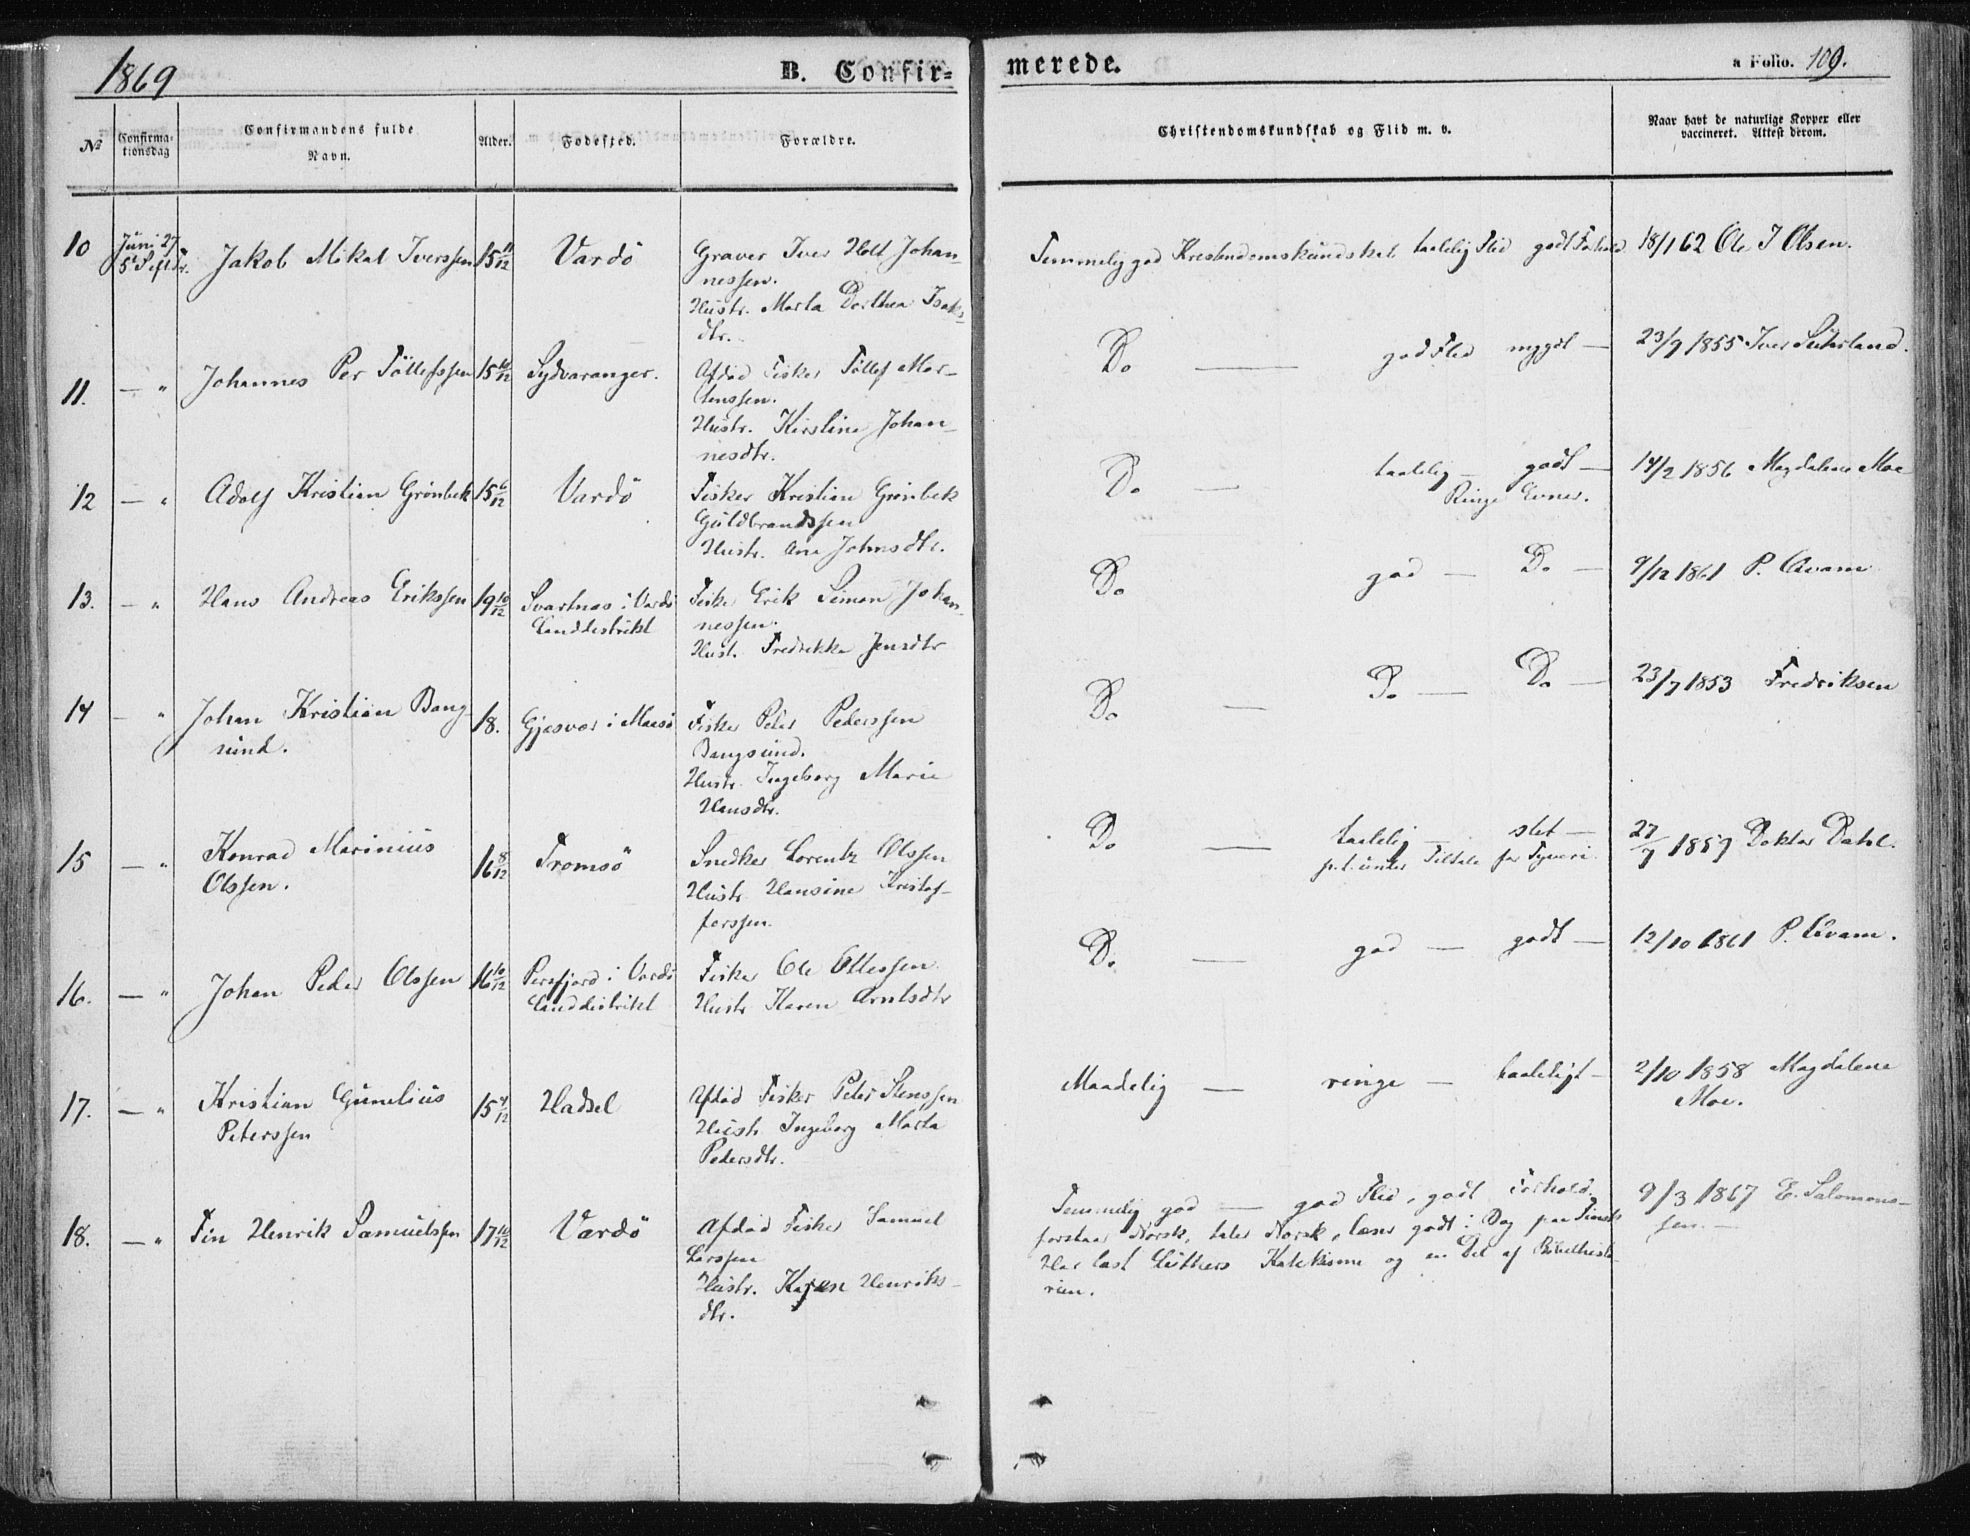 1869
B. Confir=
merede.
a Folio. 109.
No
Confirma-
tionsdag
Confirmandens fulde
Navn.
Alder.
Fødested.
Forældre.
Christendomskundskab og Flid m. v.
Naar havt de naturlige Kopper eller
vaccineret. Attest derom.
10
Juni 27
Jakob Mikal Iverssen
15 11/12
Vardö
Graver Iver Holt Johan-
nessen.
Hustr. Marta Dorthea Isaks-
dtr.
Temmelig god Kristendomskundskab taalelig Flid godt Forhold
18/1 62 Ole J Olsen.
11.
— "
Johannes Per Töllefssen
15 10/12
Sydvaranger.
Afdöd Fisker Töllef Mor-
tenssen.
Hustr. Kirstine Johan-
nesdtr.
Do — god Flid mgodt —
23/9 1855 Iver
12
— "
Adolf Kristian Grönbek
15 6/12
Vardö
Fisker Kristian Grönbek
Guldbrandssen
Hustr. Ane Johnsdtr.
Do — taalelig — godt —
Ringe Evner.
14/2 1856 Magdalene Moe
13.
— "
Hans Andreas Erikssen
19 10/12
Svartnas i Vardö
Landdistrikt
Fisker Erik Simon Johan-
nessen.
Hust. Fredrikke Jensdtr
Do god — Do —
9/12 1861 P. Avam
14
— "
Johan Kristian Bang
sund.
18.
Gjesvær i Maasö
Fisker Peter Pederssen
Bangsund.
Hustr. Ingeborg Marie
Hansdtr.
Do — Do — Do —
23/7 1853 Fredriksen
15
— "
Konrad Marinius
Olssen.
16 8/12
Tromsö
Snedker Lorentz Olssen
Hustr. Hansine Kristof-
forssen.
Do — taalelig — slet —
p.t. under Tiltale for Tyveri.
27/7 1857 Doktor Dahl.
16.
— "
Johan Peder Olssen
16 10/12
Persfjord i Vardö
Landdistrikt
Fisker Ole Ottessen
Hustr Karen Arntsdtr
Do — god — godt —
12/10 1861 P. Avam.
17.
— "
Kristian Gunelius
Peterssen
15 4/12
Hadsel
Afdöd Fisker Peter Stenssen
Hustr Ingeborg Marta
Pedersdtr.
Maadelig — ringe — taaleligt —
2/10 1858 Magdalene
Moe.
18.
— "
Fin Henrik Samuelssen
17 10/12
Vardö
Afdöd Fisker Samuel
Larssen
Hustr. Kajsen Henriks-
dtr.
Temmelig god — god Flid, godt Forhold.
forstaar Norsk, taler Norsk, læser godt i Dag paa Finsk
Har læst Luthers Katekisme og en Del af Bibelhisto
rien.
9/3 1867 E. Salomons-
sen. —